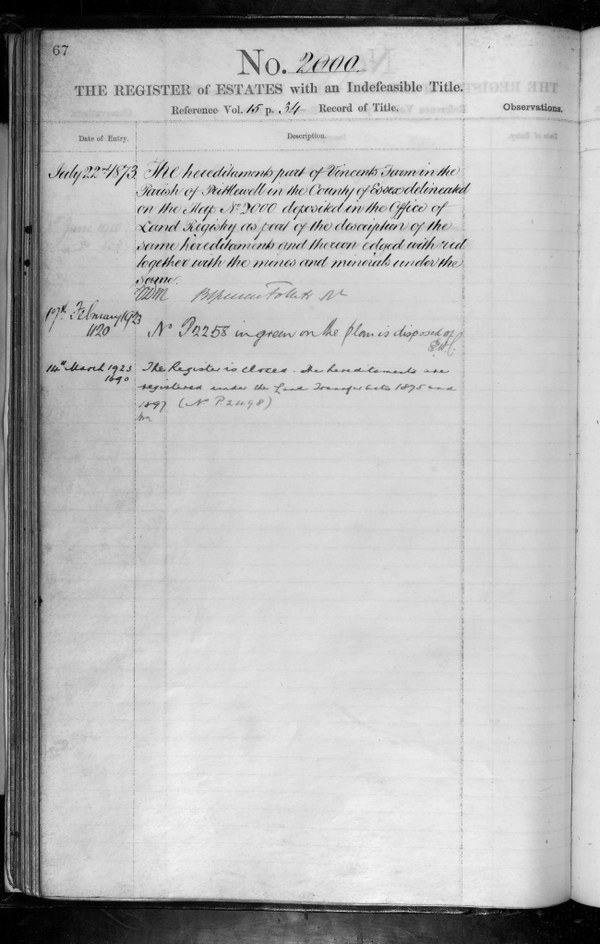 67
No. 2000.
THE REGISTER of ESTATES with an Indefeasible Title.
Reference Vol. 15 p. 34 Record of Title. Observations.
Date of Entry. Description.
July 22nd 1873 The hereditaments part of Vincents Farm in the
Parish of Prittlewell in the County of Essex delineated
on the Map No 2000 deposited in the Office of
Land Registry as part of the description of the
same hereditaments and thereon edged with red
together with the mines and minerals under the
same.
Follett
17th February 1923
1120 No P2258 in green on the plan is disposed of
14th March 1923 The Register is closed. The hereditaments are
1690 registered under the Land Transfer Acts 1875 and
1897 (No P2498)